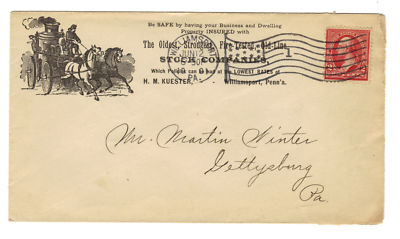 Be SAFE by having your Business and Dwelling
Properly INSURED with
The Oldest, Strongest, Fire-Tested, Old-Line
STOCK COMPANIES,
Which Policies can be had at the LOWEST RATES of
H. M. KUESTER, Williamsport, Penn'a.
WILLIAMSPORT
JUN
PA.
1
Mr. Martin Winter
Gettysburg
Pa.